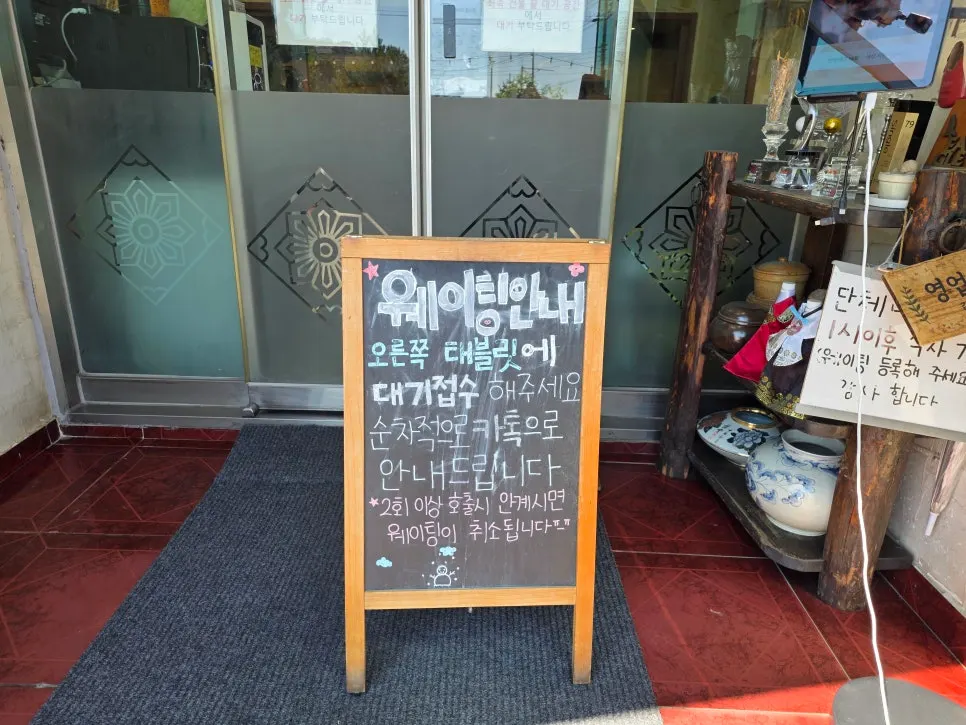 에서
대기 부탁드립니다
에서
대기 부탁드립니다
웨이팅안내
오른쪽 태블릿에
대기접수 해주세요
순차적으로 카톡으로
안내드립니다
*2회 이상 호출시 안계시면
웨이팅이 취소됩니다ㅠㅠ
79
단체
1시이후 식사
웨이팅 등록해 주세요
감사 합니다